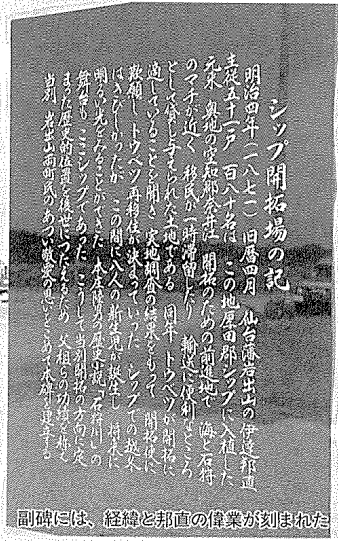 シップ開拓場の記
明治四年(一八七一)旧暦四月 仙台藩岩出山の伊達邦直
主従五十一戸 百八十名は この地厚田郡シップに入植した
元来 奥地の空知郡奈井江 開拓のための前進地で 海と石狩
のマチが近く 移民が一時滞留したり 輸送に便利なところ
として貸し与えられた土地である 同年 トウベツが開拓に
適していることを聞き 実地調査の結果をもって 開拓使に
歎願し トウベツ再移住が決まっていった シップでの越冬
はきびしかったが この間に八人の新生児が誕生し 将来に
明るい光をみることができた 本庄陸男の歴史小説「石狩川」の
舞台も ここシップであった こうして当別開拓の方向に定
まった歴史的位置を後世につたえるため 父祖らの功績を称え
当別 岩出山両町民のあつい敬愛の思いをこめて本碑を建立する
副碑には、経緯と邦直の偉業が刻まれた